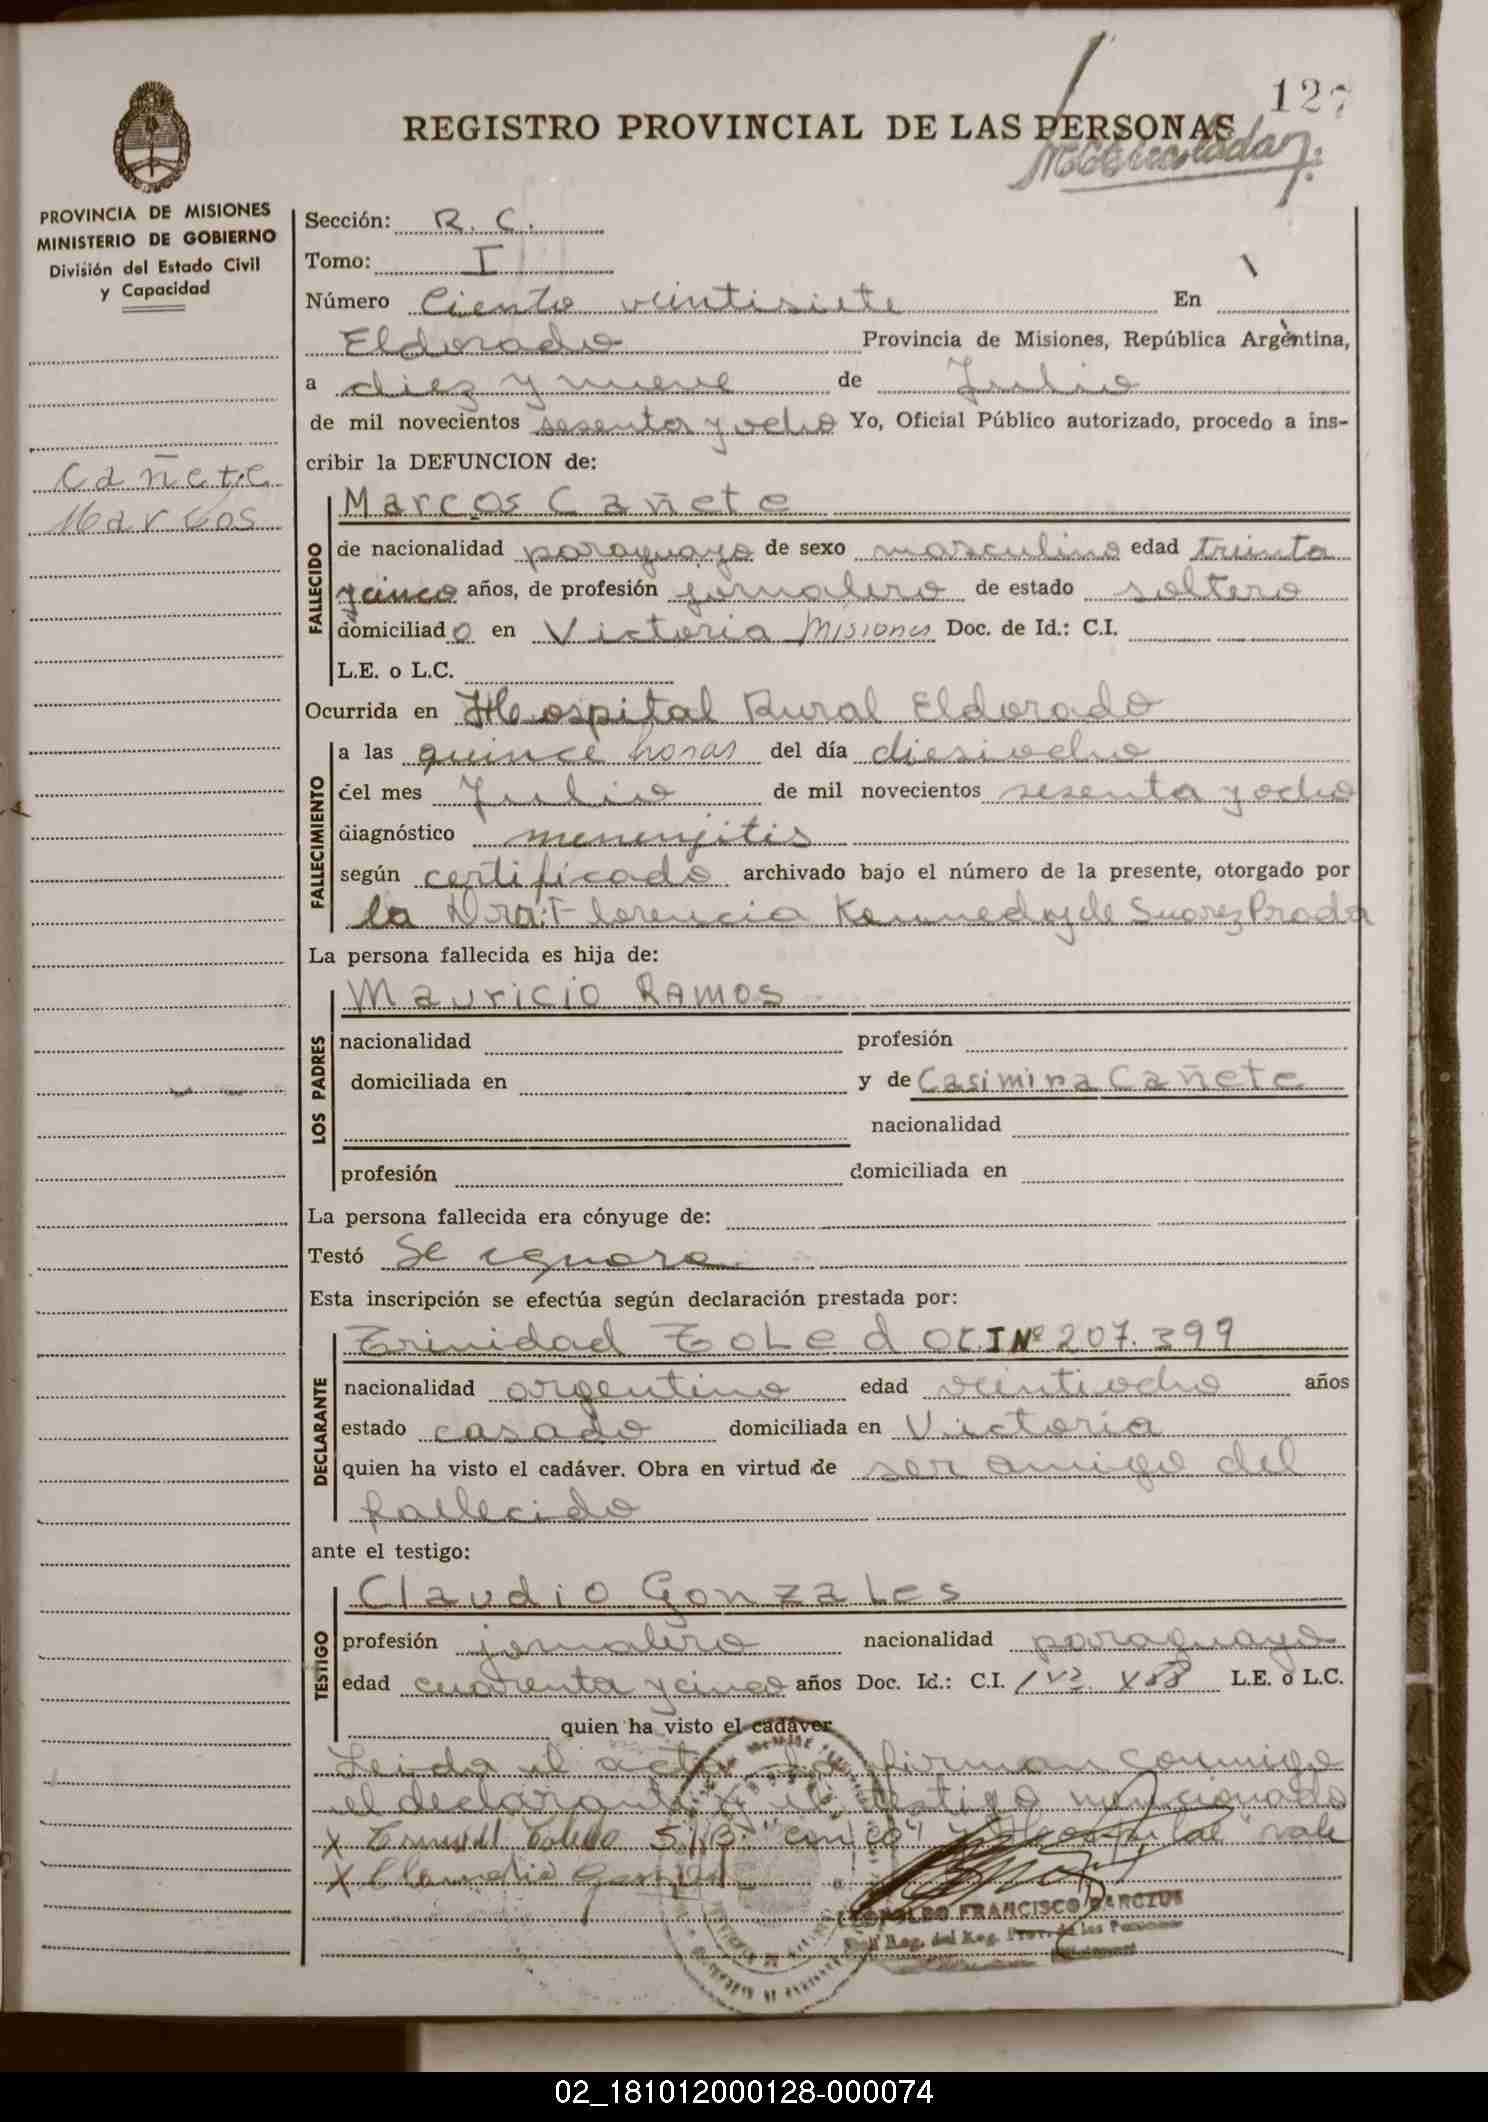 127
REGISTRO PROVINCIAL DE LAS PERSONAS
PROVINCIA DE MISIONES
MINISTERIO DE GOBIERNO
División del Estado Civil
y Capacidad
Cañete
Marcos
Sección: R. C.
Tomo: I
Número Ciento veintisiete En
Eldorado Provincia de Misiones, República Argentina,
a diez y nueve de Julio
de mil novecientos sesenta y ocho Yo, Oficial Público autorizado, procedo a ins-
cribir la DEFUNCION de:
FALLECIDO
Marcos Cañete
de nacionalidad paraguayo de sexo masculino edad treinta
y cinco años, de profesión jornalero de estado soltero
domiciliado en Victoria Misiones Doc. de Id.: C.I.
L.E. o L.C.
Ocurrida en Hospital Rural Eldorado
FALLECIMIENTO
a las quince horas del día diesiocho
del mes Julio de mil novecientos sesenta y ocho
diagnóstico menenjitis
según certificado archivado bajo el número de la presente, otorgado por
la Dra: Florencia Kennedy de Suarez Prada
La persona fallecida es hija de:
LOS PADRES
Mauricio Ramos
nacionalidad profesión
domiciliada en y de Casimira Cañete
nacionalidad
profesión domiciliada en
La persona fallecida era cónyuge de:
Testó Se ignora
Esta inscripción se efectúa según declaración prestada por:
DECLARANTE
Trinidad Toledo C.I Nº 207.399
nacionalidad argentino edad veintiocho años
estado casado domiciliada en Victoria
quien ha visto el cadáver. Obra en virtud de ser amigo del
fallecido
ante el testigo:
TESTIGO
Claudio Gonzales
profesión jornalero nacionalidad paraguayo
edad cuarenta y cinco años Doc. Id.: C.I. L.E. o L.C.
quien ha visto el cadáver
Leida el acta la firman conmigo
el declarante y el testigo mencionado
X Trinidad Toledo S/B: "cinco" y "Hospital" vale
X Claudio Gonzales
FRANCISCO
del Reg. Prov. de las Personas
02_181012000128-000074